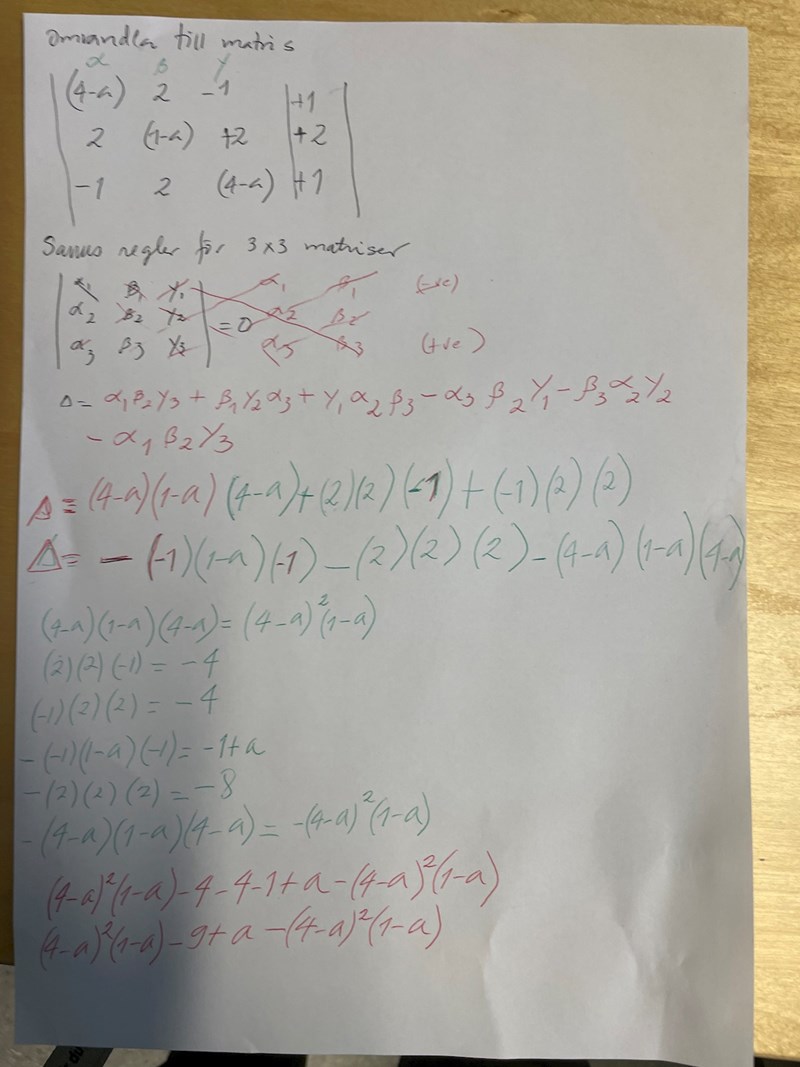 Omvandla till matris
α β γ
(4-a) 2 -1 | +1
2 (1-a) +2 | +2
-1 2 (4-a) | +1
Sarrus regler för 3x3 matriser
α₁ β₁ γ₁ α₁ β₁ (-ve)
α₂ β₂ γ₂ = 0 α₂ β₂
α₃ β₃ γ₃ α₃ β₃ (+ve)
Δ= α₁β₂γ₃ + β₁γ₂α₃ + γ₁α₂β₃ - α₃β₂γ₁ - β₃α₂γ₂
- α₁β₂γ₃
Δ = (4-a)(1-a)(4-a)+(2)(2)(-1)+(-1)(2)(2)
Δ= - (-1)(1-a)(-1) - (2)(2)(2) - (4-a)(1-a)(4-a)
(4-a)(1-a)(4-a) = (4-a)²(1-a)
(2)(2)(-1) = -4
(-1)(2)(2) = -4
-(-1)(1-a)(-1) = -1+a
-(2)(2)(2) = -8
-(4-a)(1-a)(4-a) = -(4-a)²(1-a)
(4-a)²(1-a)-4-4-1+a-(4-a)²(1-a)
(4-a)²(1-a)-9+a-(4-a)²(1-a)